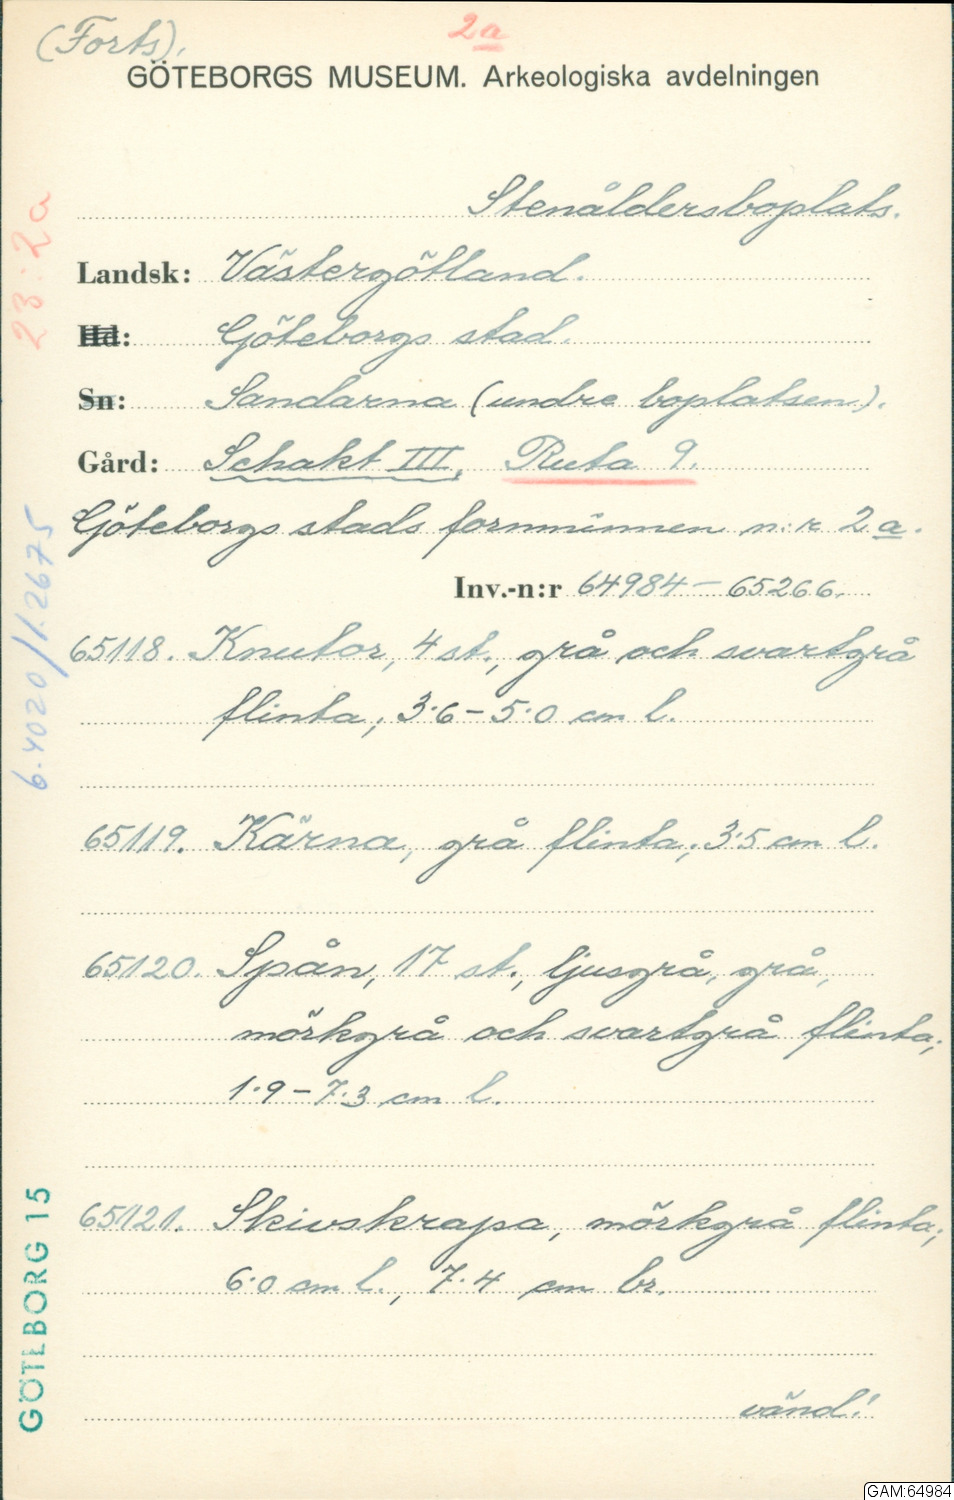 (Forts).
2a
GÖTEBORGS MUSEUM. Arkeologiska avdelningen
Stenåldersboplats.
Landsk: Västergötland.
Hd: Göteborgs stad.
Sn: Sandarna (undre boplatsen).
Gård: Schakt III, Ruta 9.
Göteborgs stads fornminnen n:r 2a.
Inv.-n:r 64984 — 65266.
65118. Knutor, 4 st., grå och svartgrå
flinta; 3·6 – 5·0 cm l.
65119. Kärna, grå flinta; 3·5 cm l.
65120. Spån, 17 st., ljusgrå, grå,
mörkgrå och svartgrå flinta;
1·9 – 7·3 cm l.
65121. Skivskrapa, mörkgrå flinta;
6·0 cm l., 7·4 cm br.
vänd!
23:2a
6.4020/1.2675
GÖTEBORG 15
GAM:64984